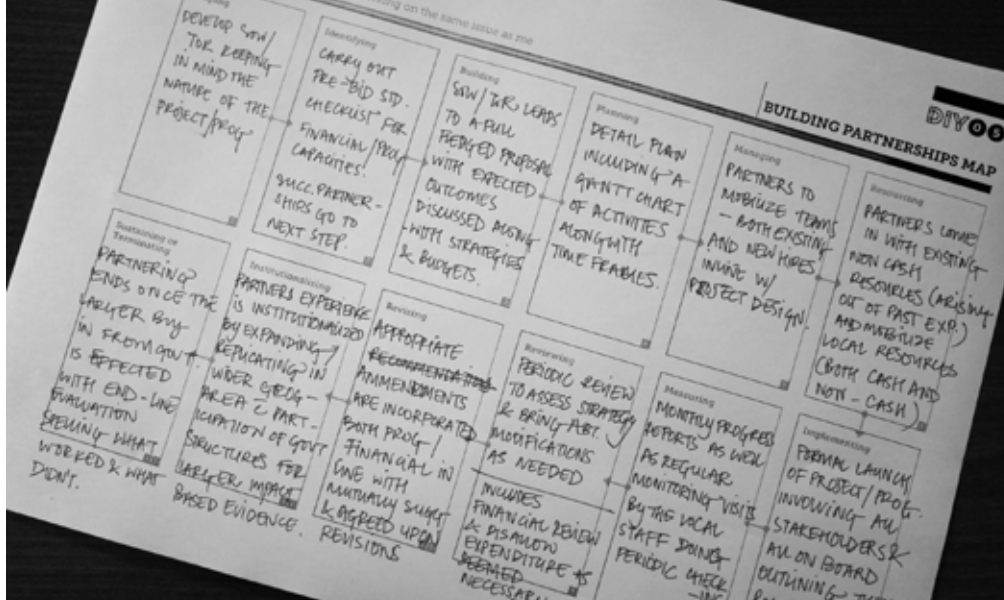 working on the same issue as me
BUILDING PARTNERSHIPS MAP
DIY 05
DEVELOP SOW/
TOR KEEPING
IN MIND THE
NATURE OF THE
PROJECT/PROG
Identifying
CARRY OUT
PRE-BID STD.
CHECKLIST FOR
FINANCIAL/PROG
CAPACITIES.
SUCC. PARTNER-
SHIPS GO TO
NEXT STEP.
Building
SOW/TOR LEADS
TO A FULL
FLEDGED PROPOSAL
WITH EXPECTED
OUTCOMES
DISCUSSED ALONG
WITH STRATEGIES
& BUDGETS.
Planning
DETAIL PLAN
INCLUDING A
GANTT CHART
OF ACTIVITIES
ALONGWITH
TIME FRAMES.
Managing
PARTNERS TO
MOBILIZE TEAMS
- BOTH EXISTING
AND NEW HIRES
INLINE W/
PROJECT DESIGN.
Resourcing
PARTNERS COME
IN WITH EXISTING
NON CASH
RESOURCES (ARISING
OUT OF PAST EXP.)
AND MOBILIZE
LOCAL RESOURCES
(BOTH CASH AND
NON-CASH)
Sustaining or
Terminating
PARTNERING
ENDS ONCE THE
LARGER BUY
IN FROM GOVT.
IS EFFECTED
WITH END-LINE
EVALUATION
SPELLING WHAT
WORKED & WHAT
DIDN'T.
Institutionalising
PARTNERS EXPERIENCE
IS INSTITUTIONALIZED
BY EXPANDING/
REPLICATING IN
WIDER GEOG-
AREA C PART-
ICIPATION OF GOVT
STRUCTURES FOR
LARGER IMPACT
BASED EVIDENCE.
Revising
APPROPRIATE
RECOMMENDATIONS
AMMENDMENTS
ARE INCORPORATED
BOTH PROG/
FINANCIAL IN
LINE WITH
MUTUALLY SUGG
& AGREED UPON
REVISIONS
Reviewing
PERIODIC REVIEW
TO ASSESS STRATEGY
& BRING ABT.
MODIFICATIONS
AS NEEDED
INCLUDES
FINANCIAL REVIEW
& DISALLOW
EXPENDITURE AS
DEEMED
Measuring
MONTHLY PROGRESS
REPORTS AS WELL
AS REGULAR
MONITORING VISITS
BY THE LOCAL
STAFF DOING
PERIODIC CHECK
-ING
Implementing
FORMAL LAUNCH
OF PROJECT/PROG.
INVOLVING ALL
STAKEHOLDERS &
ALL ON BOARD
OUTLINING